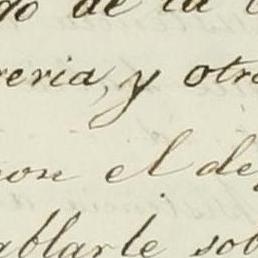 do de la
reria, y otro
on el de
ablarle sob